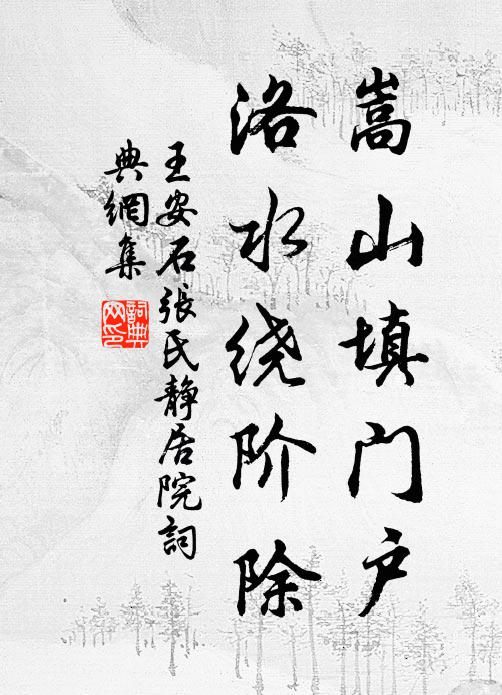 嵩山填门户
洛水绕阶除
王安石张氏静居院詞
典網集
詞典
网印